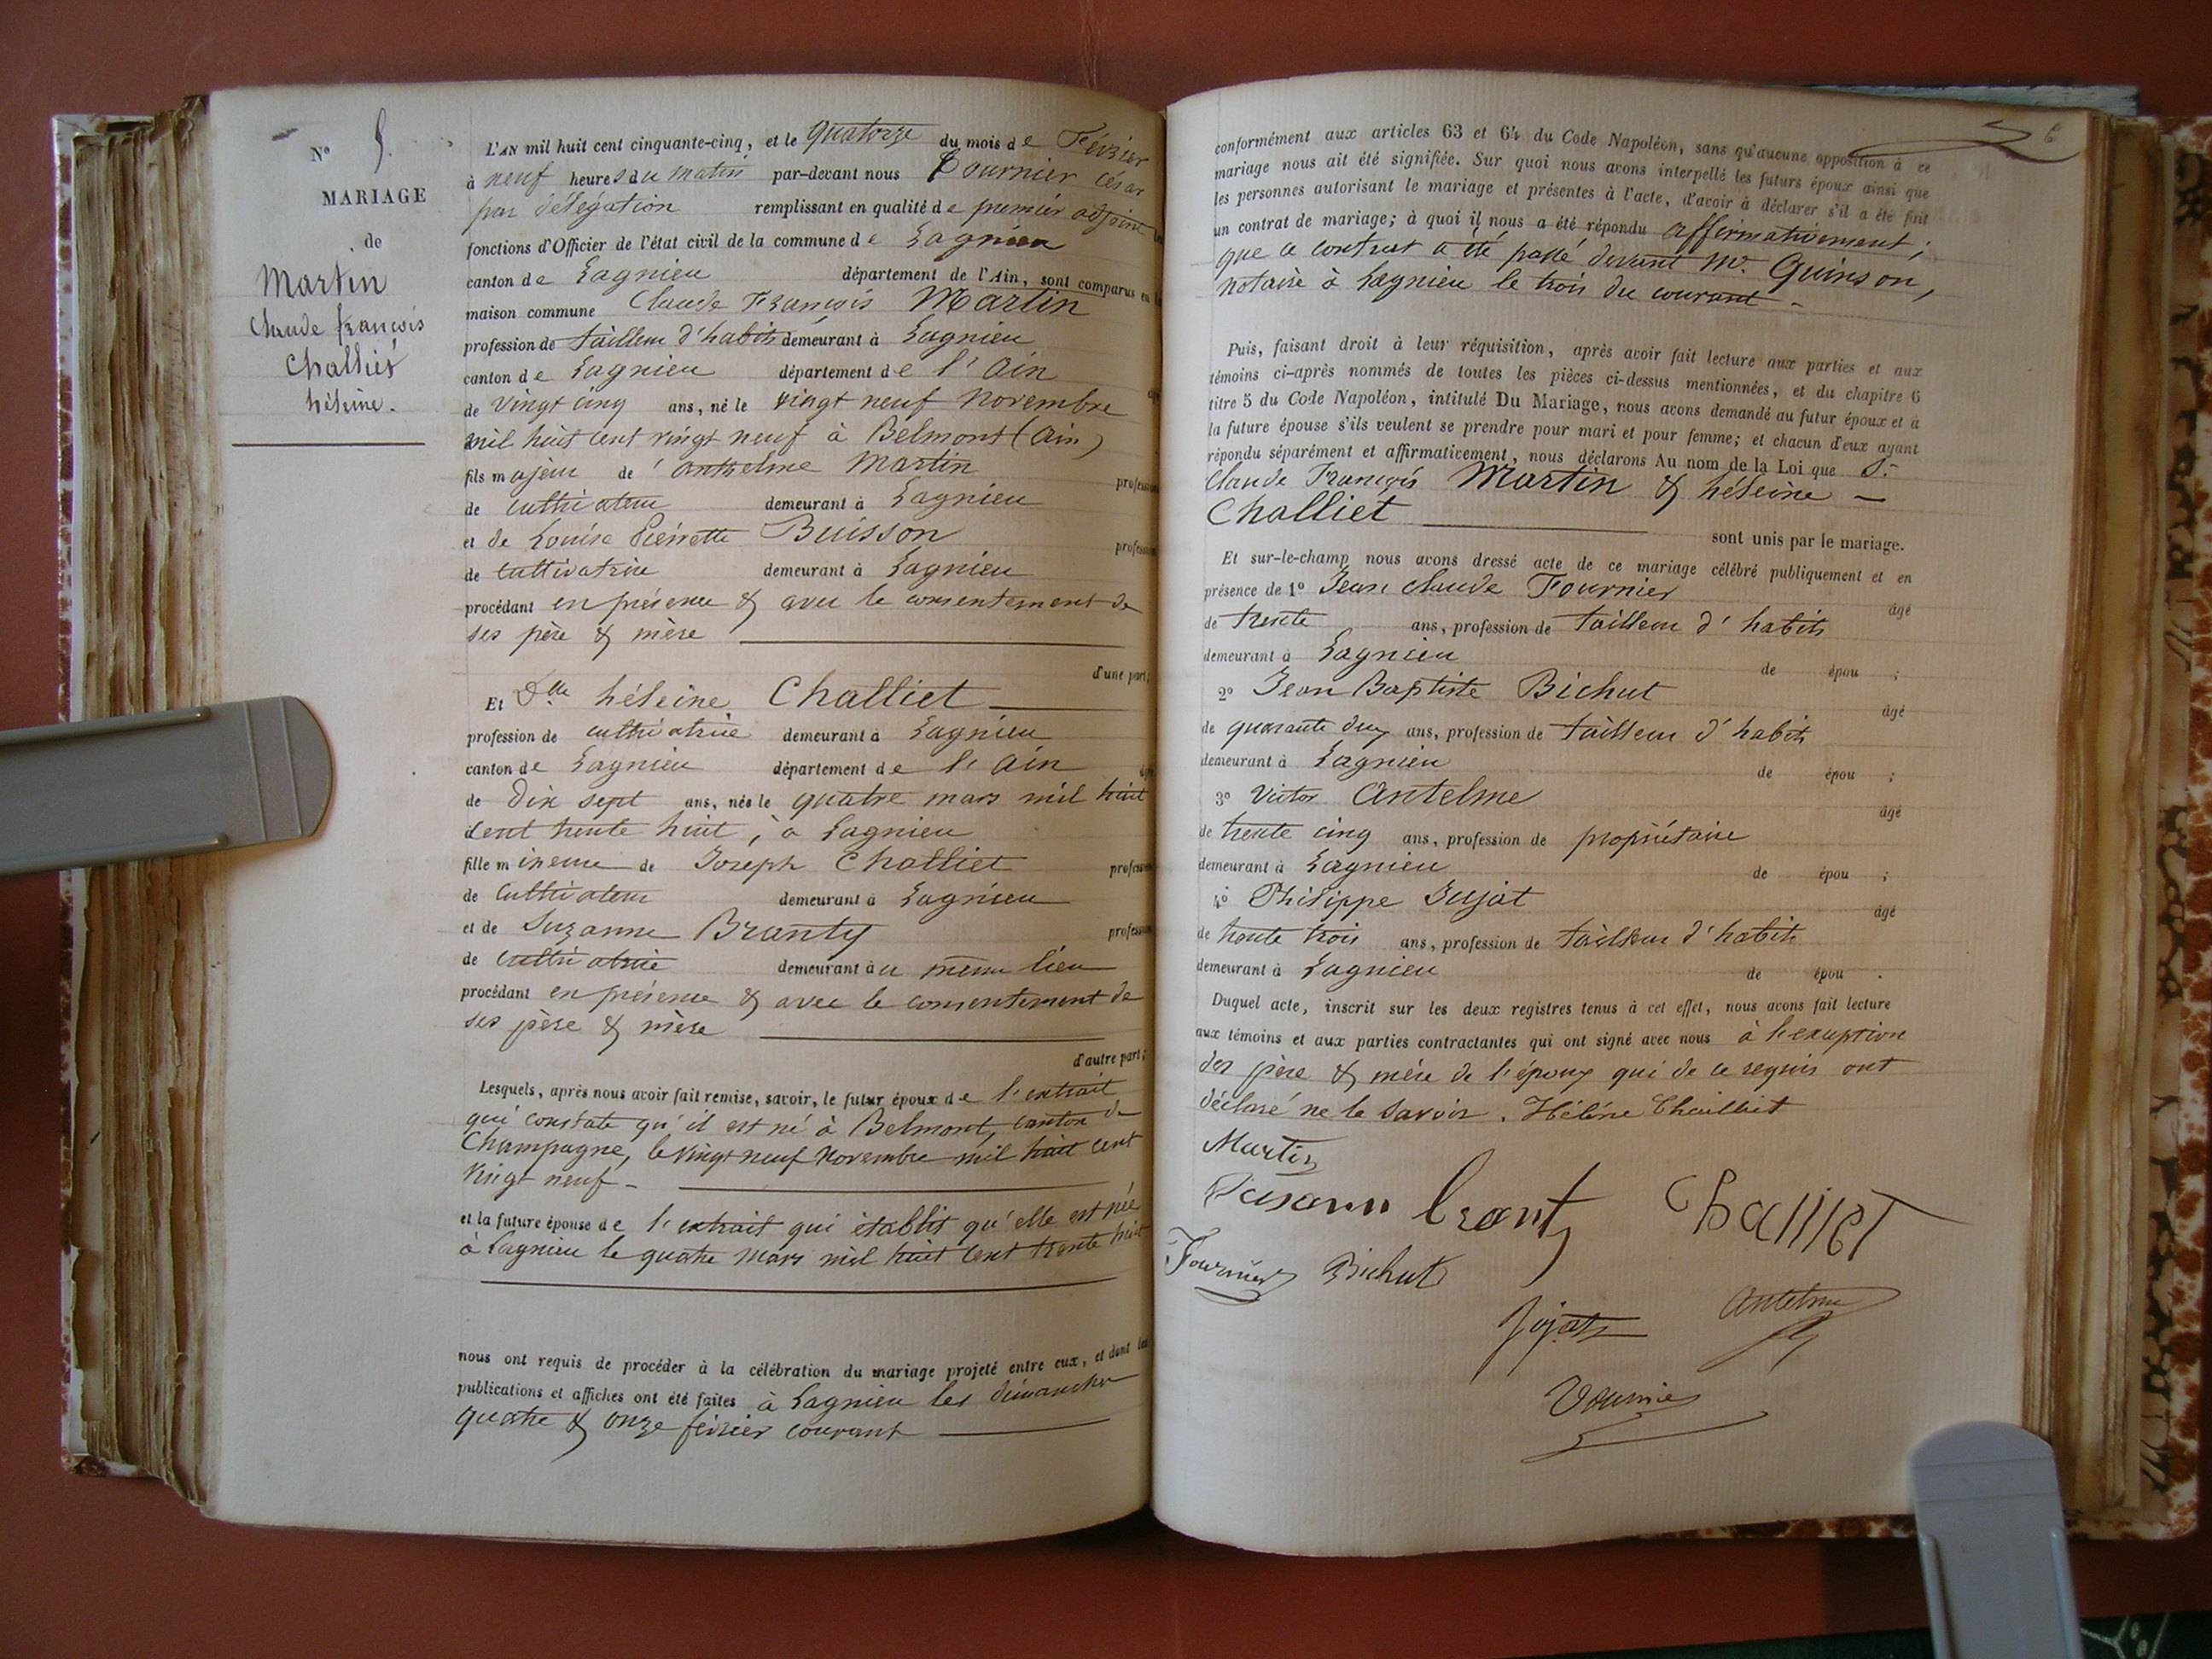 N° 5.
MARIAGE
de
Martin
Claude françois
Challiet
héleine.
L'AN mil huit cent cinquante-cinq, et le quatorze du mois de Février
à neuf heures du matin par-devant nous Fournier César
par délégation remplissant en qualité de premier adjoint les
fonctions d'Officier de l'état civil de la commune de Lagnieu
canton de Lagnieu département de l'Ain, sont comparus en la
maison commune Claude François Martin
profession de tailleur d'habits demeurant à Lagnieu
canton de Lagnieu département de l'Ain
de vingt cinq ans, né le vingt neuf Novembre
mil huit cent vingt neuf à Belmont (Ain)
fils majeur de anthelme Martin profession
de cultivateur demeurant à Lagnieu
et de Louise Pierrette Buisson profession
de cultivatrice demeurant à Lagnieu
procédant en présence & avec le consentement de
ses père & mère
d'une part;
Et Dlle héleine Challiet
profession de cultivatrice demeurant à Lagnieu
canton de Lagnieu département de l'Ain
de dix sept ans, née le quatre mars mil huit
cent trente huit, à Lagnieu
fille mineure de Joseph Challiet profession
de Cultivateur demeurant à Lagnieu
et de Suzanne Branty profession
de cultivatrice demeurant au même lieu
procédant en présence & avec le consentement de
ses père & mère
d'autre part;
Lesquels, après nous avoir fait remise, savoir, le futur époux de l'extrait
qui constate qu'il est né à Belmont, canton de
Champagne, le vingt neuf Novembre mil huit cent
vingt neuf -
et la future épouse de l'extrait qui établit qu'elle est née
à Lagnieu le quatre mars mil huit cent trente huit
nous ont requis de procéder à la célébration du mariage projeté entre eux, et dont les
publications et affiches ont été faites à Lagnieu les dimanche
quatre & onze février courant
6
conformément aux articles 63 et 64 du Code Napoléon, sans qu'aucune opposition à ce
mariage nous ait été signifiée. Sur quoi nous avons interpellé les futurs époux ainsi que
les personnes autorisant le mariage et présentes à l'acte, d'avoir à déclarer s'il a été fait
un contrat de mariage; à quoi il nous a été répondu affirmativement;
que ce contrat a été passé devant Mr. Quinson,
notaire à Lagnieu le trois du courant -
Puis, faisant droit à leur réquisition, après avoir fait lecture aux parties et aux
témoins ci-après nommés de toutes les pièces ci-dessus mentionnées, et du chapitre 6
titre 5 du Code Napoléon, intitulé Du Mariage, nous avons demandé au futur époux et à
la future épouse s'ils veulent se prendre pour mari et pour femme; et chacun d'eux ayant
répondu séparément et affirmativement, nous déclarons Au nom de la Loi que Sr
Claude François Martin & héleine -
Challiet
sont unis par le mariage.
Et sur-le-champ nous avons dressé acte de ce mariage célébré publiquement et en
présence de 1° Jean Claude Fournier âgé
de trente ans, profession de tailleur d'habits
demeurant à Lagnieu de épou ;
2° Jean Baptiste Bichut âgé
de quarante deux ans, profession de tailleur d'habits
demeurant à Lagnieu de épou ;
3° Victor Antelme âgé
de trente cinq ans, profession de propriétaire
demeurant à Lagnieu de épou ;
4° Philippe Jujat âgé
de trente trois ans, profession de tailleur d'habits
demeurant à Lagnieu de épou .
Duquel acte, inscrit sur les deux registres tenus à cet effet, nous avons fait lecture
aux témoins et aux parties contractantes qui ont signé avec nous à l'exception
des père & mère de l'époux qui de ce requis ont
déclaré ne le savoir. Hélène Chailliet
Martin
Susann brant Challiet
Fournier Bichut
Jujat Antelme